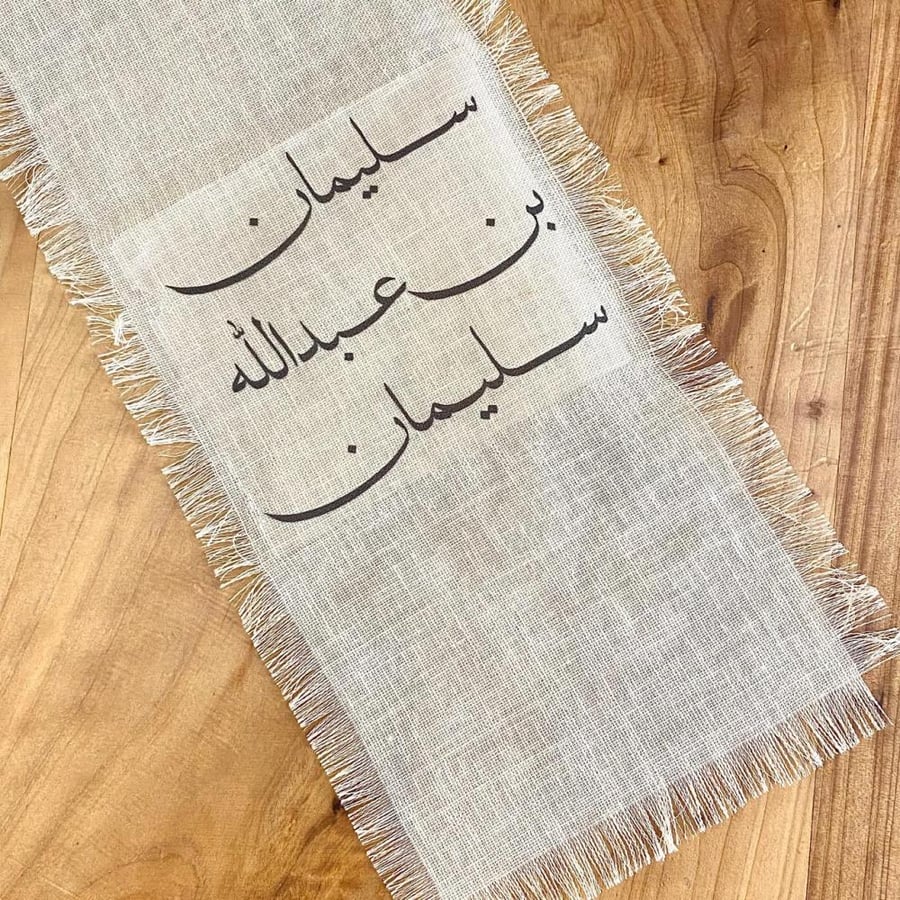 سليمان
بن عبدالله
سليمان